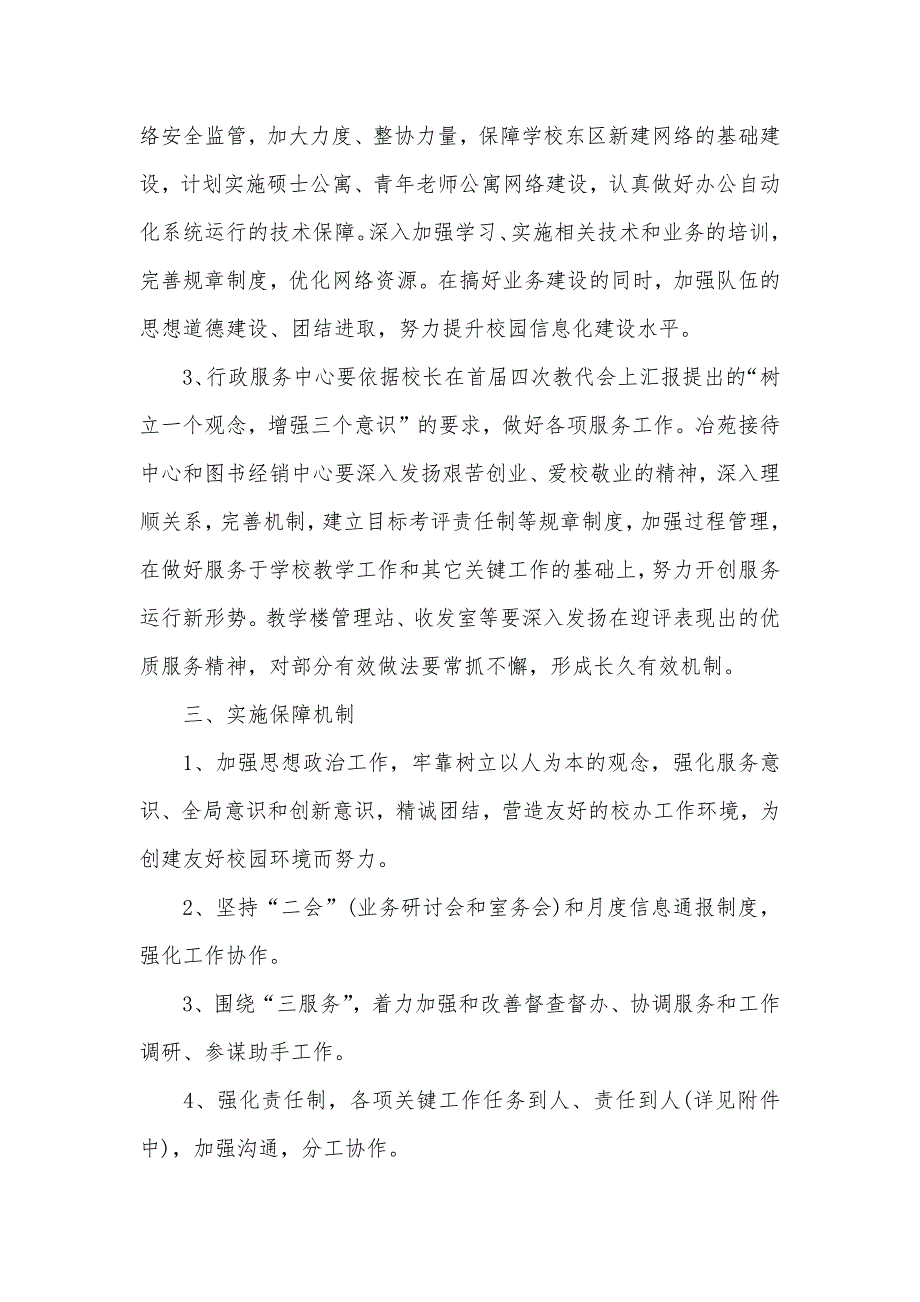 络安全监管，加大力度、整协力量，保障学校东区新建网络的基础建
设，计划实施硕士公寓、青年老师公寓网络建设，认真做好办公自动
化系统运行的技术保障。深入加强学习、实施相关技术和业务的培训，
完善规章制度，优化网络资源。在搞好业务建设的同时，加强队伍的
思想道德建设、团结进取，努力提升校园信息化建设水平。
3、行政服务中心要依据校长在首届四次教代会上汇报提出的“树
立一个观念，增强三个意识”的要求，做好各项服务工作。冶苑接待
中心和图书经销中心要深入发扬艰苦创业、爱校敬业的精神，深入理
顺关系，完善机制，建立目标考评责任制等规章制度，加强过程管理，
在做好服务于学校教学工作和其它关键工作的基础上，努力开创服务
运行新形势。教学楼管理站、收发室等要深入发扬在迎评表现出的优
质服务精神，对部分有效做法要常抓不懈，形成长久有效机制。
三、实施保障机制
1、加强思想政治工作，牢靠树立以人为本的观念，强化服务意
识、全局意识和创新意识，精诚团结，营造友好的校办工作环境，为
创建友好校园环境而努力。
2、坚持“二会”(业务研讨会和室务会)和月度信息通报制度，
强化工作协作。
3、围绕“三服务”，着力加强和改善督查督办、协调服务和工作
调研、参谋助手工作。
4、强化责任制，各项关键工作任务到人、责任到人(详见附件
中)，加强沟通，分工协作。